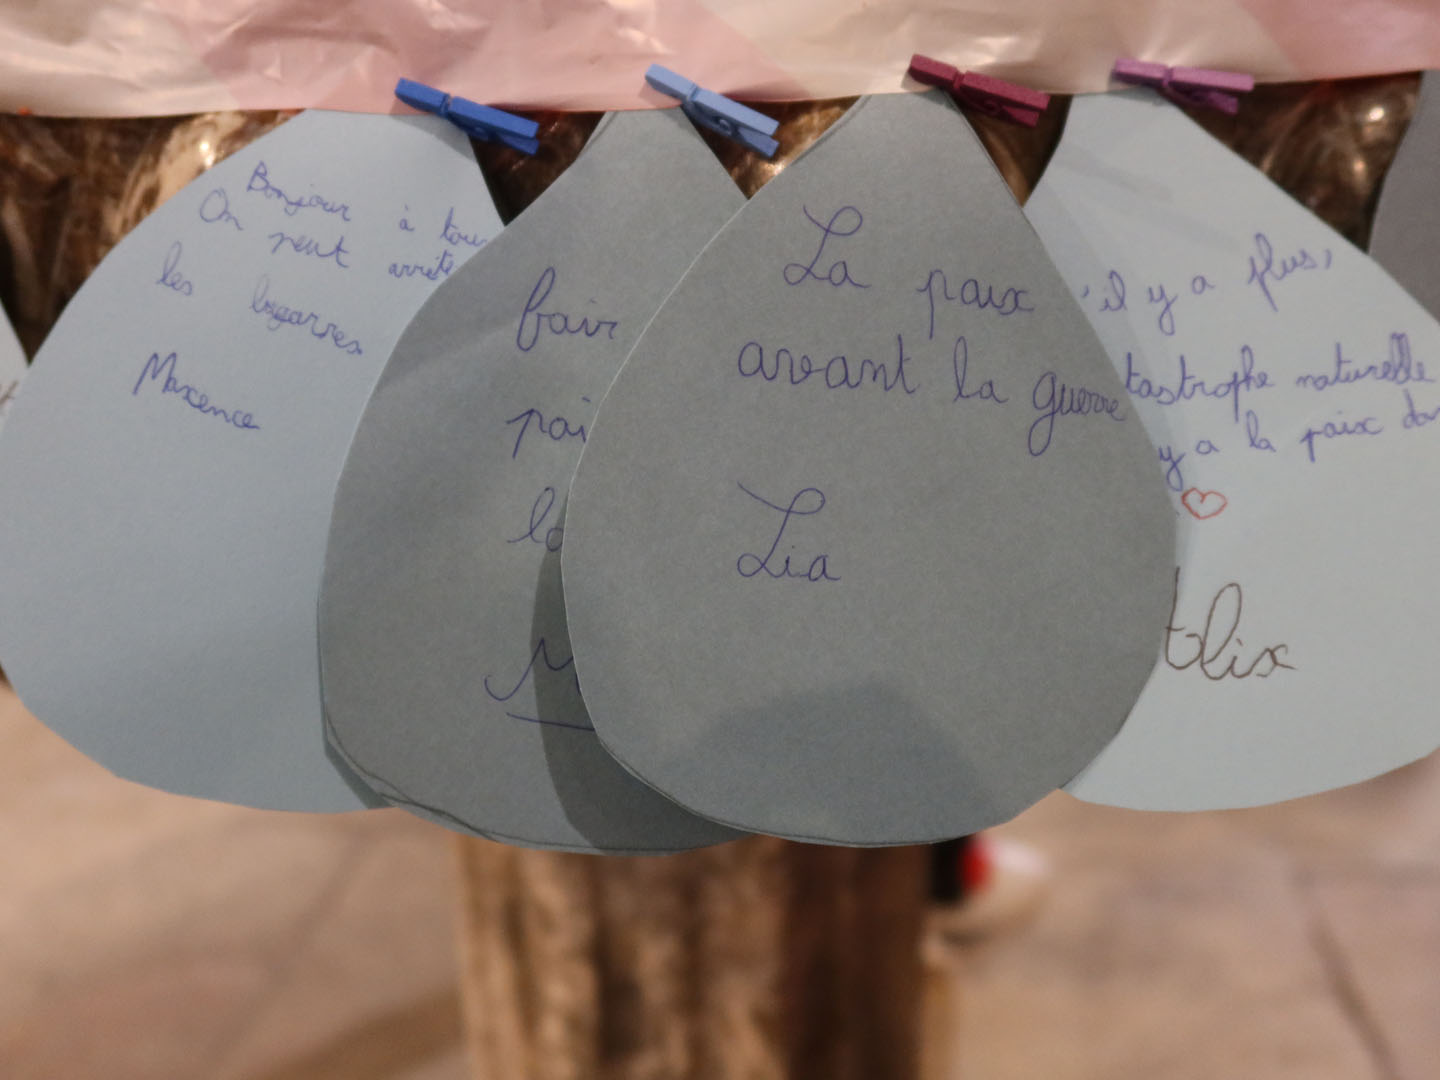 Bonjour à tou
On peut arrête
les bagarres
Maxence
fair
pai
la
M
La paix
avant la guerre
Lia
'il y a plus,
tastrophe naturelle
y a la paix dan
lix